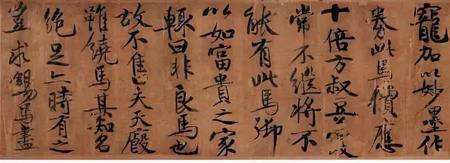 寵加以妙墨作
券此馬價應
十倍方叔豆羹
常不繼將不
能有此馬御
以如富貴之家
輒曰非良馬也
故不售夫天廐
雖饒馬其知名
絕足亦時有之
豈求錫馬盡